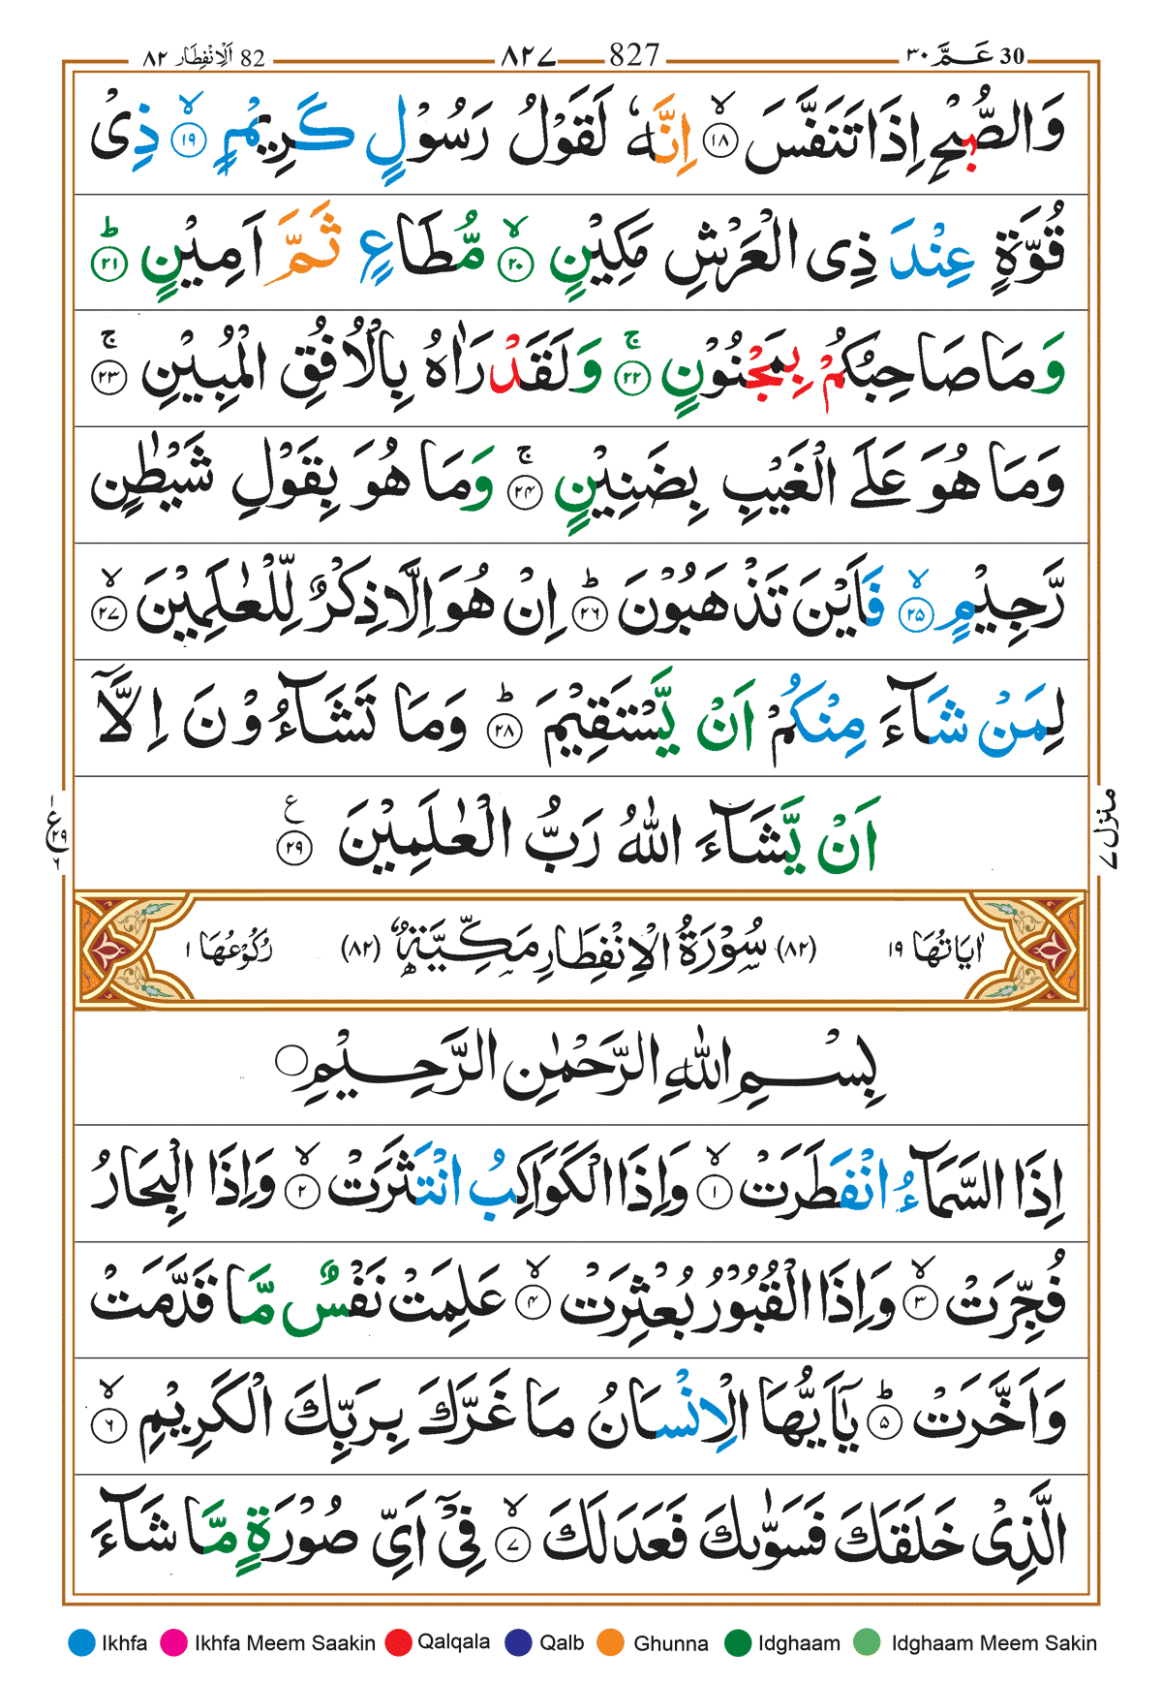 اَلْاِنْفِطَار ٨٢ 82 ٨٢٧ 827 عَـمَّ ٣٠ 30
وَالصُّبْحِ اِذَا تَنَفَّسَ ۙ﴿۱۸﴾ اِنَّهٗ لَقَوْلُ رَسُوْلٍ كَرِيْمٍ ۙ﴿۱۹﴾ ذِىْ
قُوَّةٍ عِنْدَ ذِى الْعَرْشِ مَكِيْنٍ ۙ﴿۲۰﴾ مُّطَاعٍ ثَمَّ اَمِيْنٍ ؕ﴿۲۱﴾
وَمَا صَاحِبُكُمْ بِمَجْنُوْنٍ ۚ﴿۲۲﴾ وَلَقَدْ رَاٰهُ بِالْاُفُقِ الْمُبِيْنِ ۚ﴿۲۳﴾
وَمَا هُوَ عَلَى الْغَيْبِ بِضَنِيْنٍ ۚ﴿۲۴﴾ وَمَا هُوَ بِقَوْلِ شَيْطٰنٍ
رَّجِيْمٍ ۙ﴿۲۵﴾ فَاَيْنَ تَذْهَبُوْنَ ؕ﴿۲۶﴾ اِنْ هُوَ اِلَّا ذِكْرٌ لِّلْعٰلَمِيْنَ ۙ﴿۲۷﴾
لِمَنْ شَآءَ مِنْكُمْ اَنْ يَّسْتَقِيْمَ ؕ﴿۲۸﴾ وَمَا تَشَآءُوْنَ اِلَّاۤ
اَنْ يَّشَآءَ اللّٰهُ رَبُّ الْعٰلَمِيْنَ ﴿۲۹﴾ ع
منزل ۷
ع ۲۹ ٦
اٰيَاتُهَا ۱۹ (۸۲) سُوْرَةُ الْاِنْفِطَارِ مَكِّيَّةٌ (۸۲) رُكُوْعُهَا ۱
بِسْمِ اللّٰهِ الرَّحْمٰنِ الرَّحِيْمِ
اِذَا السَّمَآءُ انْفَطَرَتْ ۙ﴿۱﴾ وَاِذَا الْكَوَاكِبُ انْتَثَرَتْ ۙ﴿۲﴾ وَاِذَا الْبِحَارُ
فُجِّرَتْ ۙ﴿۳﴾ وَاِذَا الْقُبُوْرُ بُعْثِرَتْ ۙ﴿۴﴾ عَلِمَتْ نَفْسٌ مَّا قَدَّمَتْ
وَاَخَّرَتْ ؕ﴿۵﴾ يٰۤاَيُّهَا الْاِنْسَانُ مَا غَرَّكَ بِرَبِّكَ الْكَرِيْمِ ۙ﴿۶﴾
الَّذِىْ خَلَقَكَ فَسَوّٰىكَ فَعَدَلَكَ ۙ﴿۷﴾ فِىْۤ اَىِّ صُوْرَةٍ مَّا شَآءَ
Ikhfa Ikhfa Meem Saakin Qalqala Qalb Ghunna Idghaam Idghaam Meem Sakin